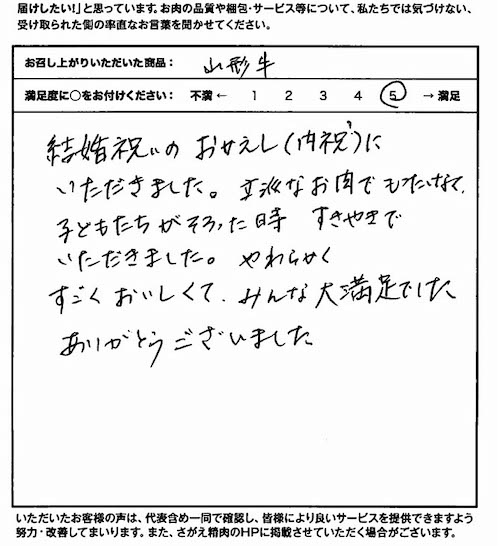 届けしたい!」と思っています。お肉の品質や梱包・サービス等について、私たちでは気づけない、
受け取られた側の率直なお言葉を聞かせてください。
お召し上がりいただいた商品: 山形牛
満足度に○をお付けください: 不満 ← 1 2 3 4 5 → 満足
結婚祝いの おかえし(内祝)に
いただきました。 立派なお肉でもったいなくて、
子どもたちがそろった時 すきやきで
いただきました。 やわらかく
すごくおいしくて、みんな大満足でした
ありがとうございました
いただいたお客様の声は、代表含め一同で確認し、皆様により良いサービスを提供できますよう
努力・改善してまいります。また、さがえ精肉のHPに掲載させていただく場合がございます。